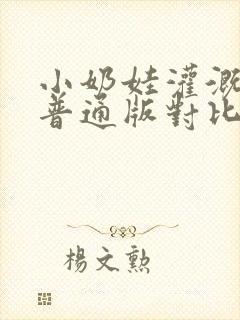 小奶娃灌溉
普通版對比
楊文勲